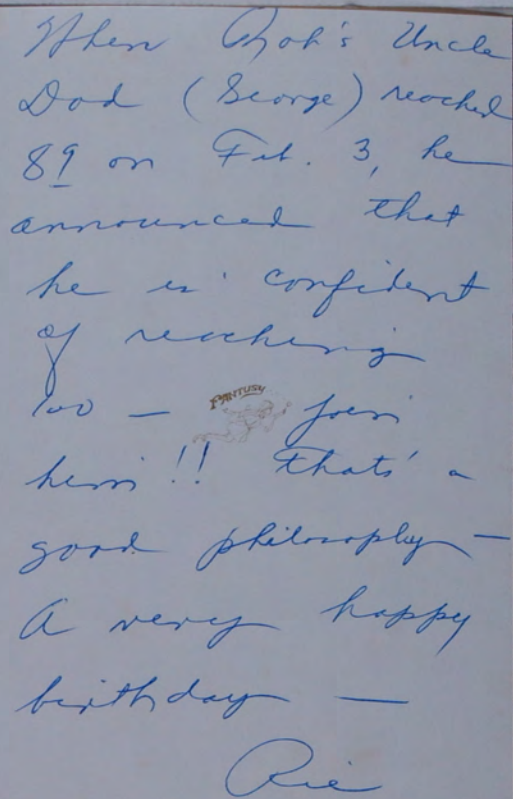 When Bob's Uncle
Dod (George) reached
89 on Feb. 3, he
announced that
he is confident
of reaching
100 — join
him!! thats' a
good philosophy —
A very happy
birthday —
Rie